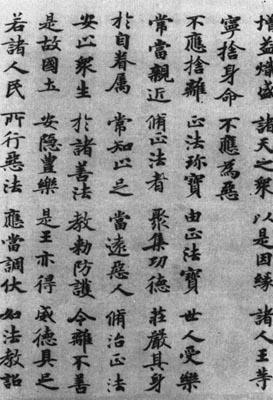 增益熾盛 諸天之衆 以是因緣 諸人王等
寧捨身命 不應為惡
不應捨離 正法珍寶 由正法寶 世人受樂
常當親近 脩正法者 聚集功德 莊嚴其身
於自眷属 常知止足 當遠惡人 脩治正法
安止衆生 於諸善法 教勑防護 令離不善
是故國土 安隱豐樂 是王亦得 威德具足
若諸人民 所行惡法 應當調伏 如法教詔